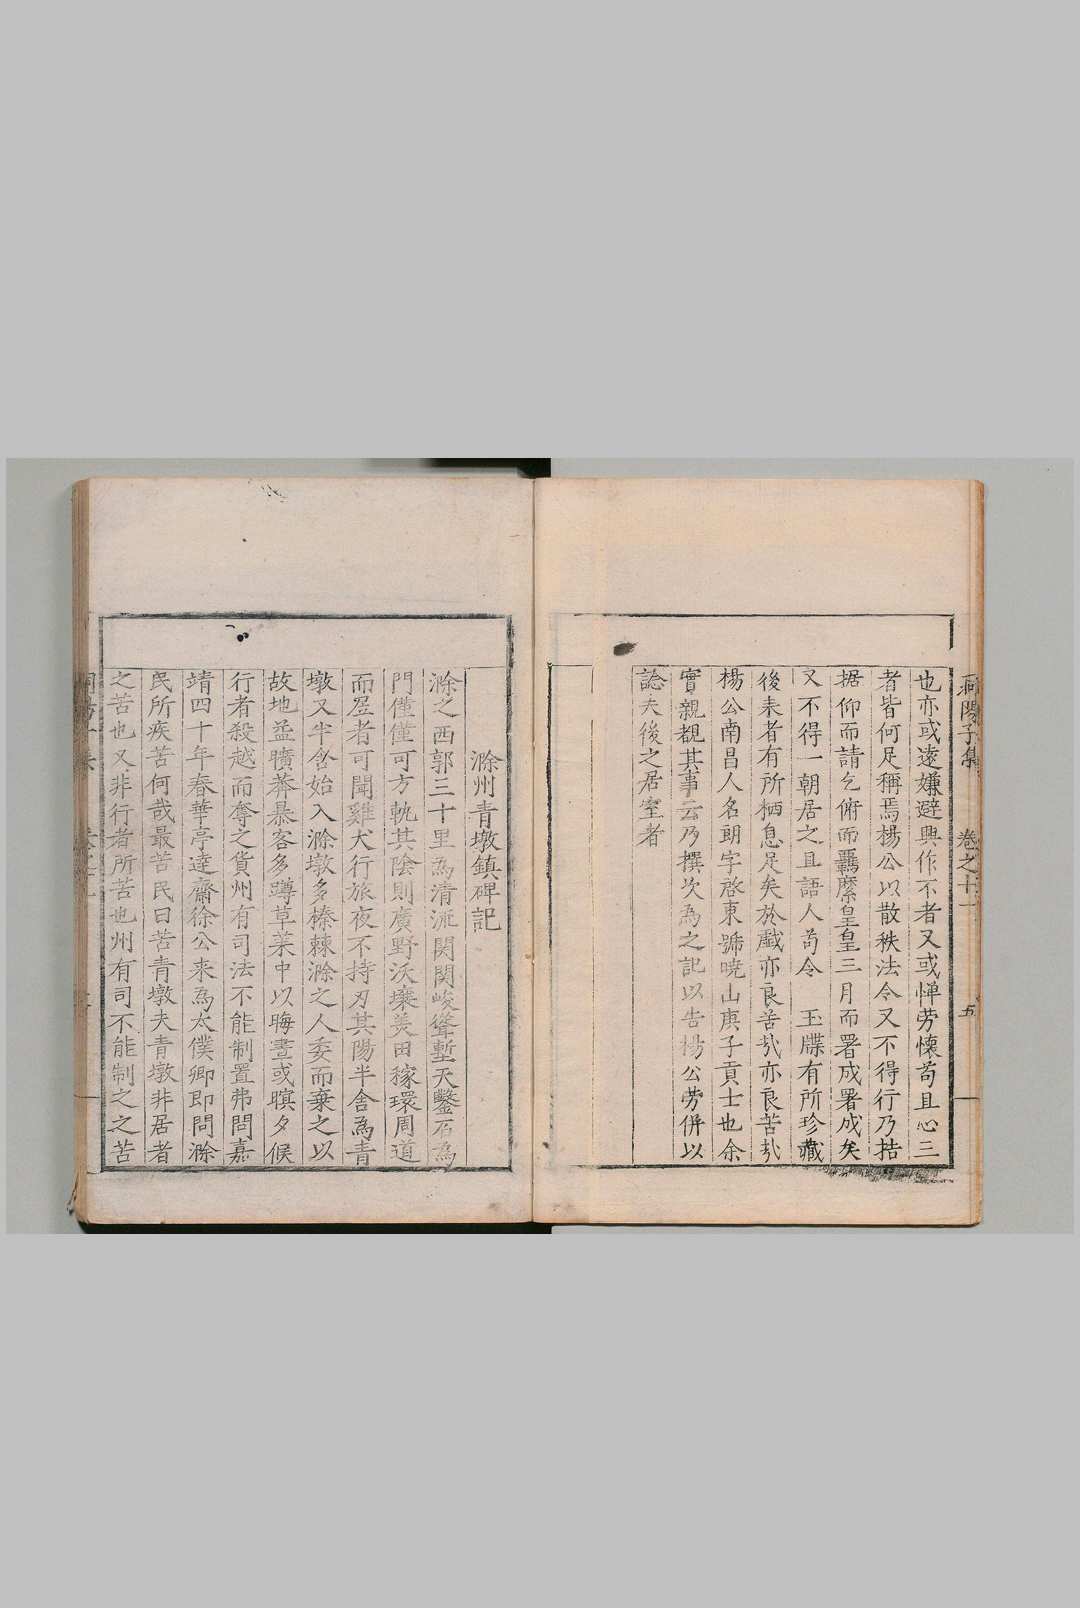 洞陽子集 卷之十一 五
也亦或遠嫌避興作不者又或憚勞懷苟且心三
者皆何足稱焉楊公以散秩法令又不得行乃拮
据仰而請乞俯而羈縻皇皇三月而署成署成矣
又不得一朝居之且語人苟令 玉牒有所珍藏
後来者有所栖息足矣於戲亦良苦㢤亦良苦㢤
楊公南昌人名朗字啓東號曉山庚子貢士也余
實親覩其事云乃撰次為之記以告楊公勞併以
諗夫後之居室者
滁州青墩鎮碑記
滁之西郭三十里為清流関関峻聳塹天鑿石為
門僅僅可方軌其陰則廣野沃壤美田稼環周道
而居者可聞雞犬行旅夜不持刃其陽半舍為青
墩又半舍始入滁墩多榛棘滁之人委而棄之以
故地益曠莽暴客多蹲草莱中以晦晝或暝夕候
行者殺越而奪之貨州有司法不能制置弗問嘉
靖四十年春華亭達齋徐公来為太僕卿即問滁
民所疾苦何哉最苦民曰苦青墩夫青墩非居者
之苦也又非行者所苦也州有司不能制之之苦